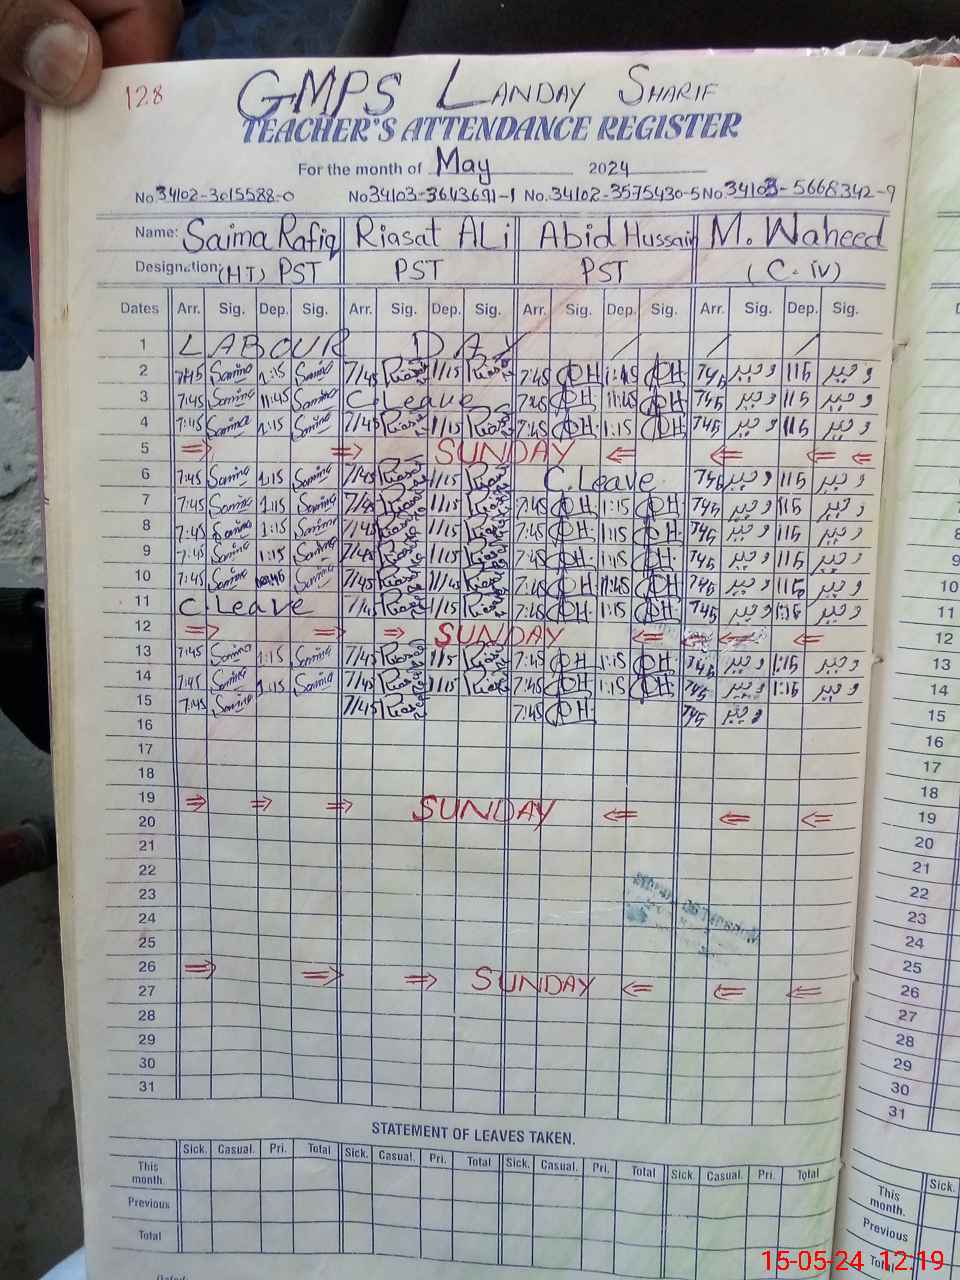 128
GMPS LANDAY SHARIF
TEACHER'S ATTENDANCE REGISTER
For the month of May 2024
No. 34102-3015588-0 No 34103-3643691-1 No. 34102-3575430-5 No. 34103-5668342-9
Name: Saima Rafiq Riasat ALi Abid Hussain M. Waheed
Designation: (HT) PST PST PST (C. iv)
Dates Arr. Sig. Dep. Sig. Arr. Sig. Dep. Sig. Arr. Sig. Dep. Sig. Arr. Sig. Dep. Sig.
1 LABOUR DAY
2 7:45 Saima 1:15 Saima 7/45 Riasat 1/15 Riasat 7:45 1:15 745 وحید 115 وحید
3 7:45 Saima 11:45 Saima C.Leave 7:45 11:45 745 وحید 115 وحید
4 7:45 Saima 1:15 Saima 7/45 Riasat 1/15 Riasat 7:45 1:15 745 وحید 115 وحید
5 ⇒ ⇒ SUNDAY ⇐ ⇐ ⇐ ⇐
6 7:45 Saima 1:15 Saima 7/45 Riasat 1/15 Riasat C.Leave 745 وحید 115 وحید
7 7:45 Saima 1:15 Saima 7/45 Riasat 1/15 Riasat 7:45 1:15 745 وحید 115 وحید
8 7:45 Saima 1:15 Saima 7/45 Riasat 1/15 Riasat 7:45 1:15 745 وحید 115 وحید
9 7:45 Saima 1:15 Saima 7/45 Riasat 1/15 Riasat 7:45 1:15 745 وحید 115 وحید
10 7:45 Saima Saima 7/45 Riasat 11/45 Riasat 7:45 11:45 745 وحید وحید
11 C.Leave 7/45 Riasat 1/15 Riasat 7:45 1:15 745 وحید 1:15 وحید
12 ⇒ ⇒ ⇒ SUNDAY ⇐ ⇐ ⇐ ⇐
13 7:45 Saima 1:15 Saima 7/45 Riasat 1/15 Riasat 7:45 1:15 745 وحید 1:15 وحید
14 7:45 Saima 1:15 Saima 7/45 Riasat 1/15 Riasat 7:45 1:15 745 وحید 1:15 وحید
15 7:45 Saima 7/45 Riasat 7:45 745 وحید
16
17
18
19 ⇒ ⇒ ⇒ SUNDAY ⇐ ⇐ ⇐
20
21
22
23
24
25
26 ⇒ ⇒ ⇒ SUNDAY ⇐ ⇐ ⇐
27
28
29
30
31
STATEMENT OF LEAVES TAKEN.
Sick. Casual. Pri. Total Sick. Casual. Pri. Total Sick. Casual. Pri. Total Sick. Casual. Pri. Total
This month.
Previous
Total
8
9
10
11
12
13
14
15
16
17
18
19
20
21
22
23
24
25
26
27
28
29
30
31
Sick.
This month.
Previous
Total
15-05-24 12:19